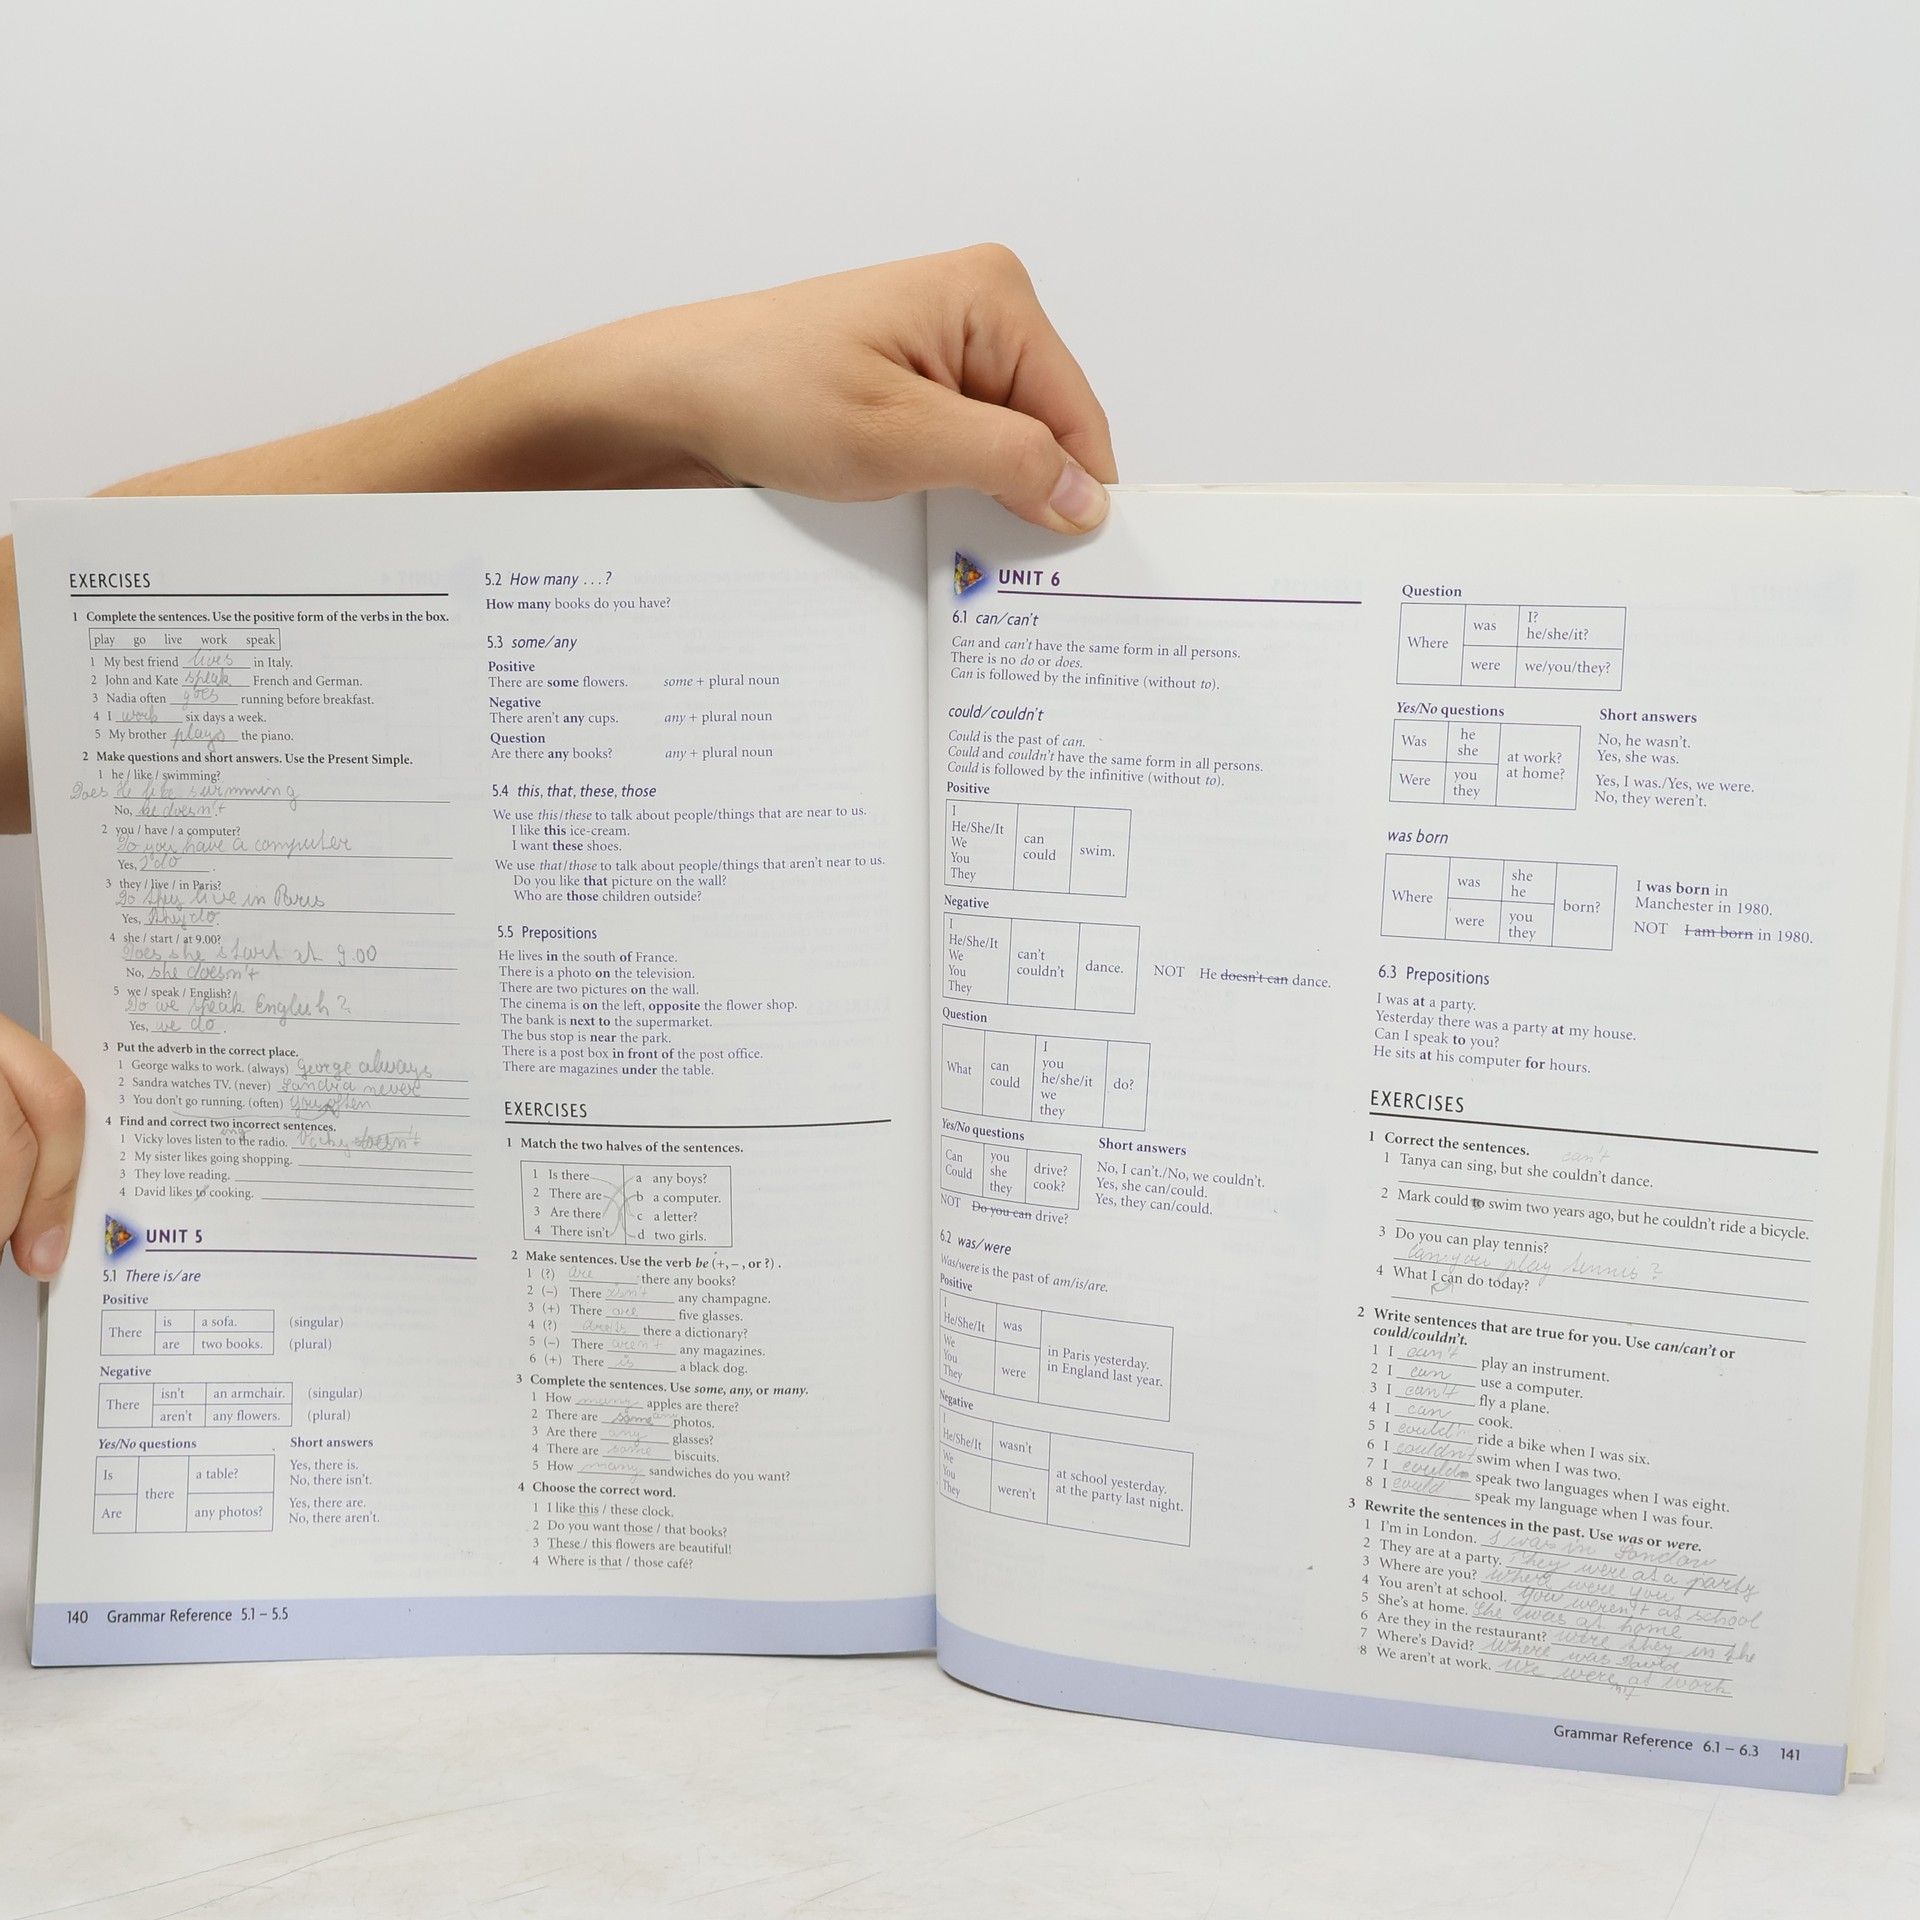 EXERCISES
1 Complete the sentences. Use the positive form of the verbs in the box.
play go live work speak
1 My best friend lives in Italy.
2 John and Kate speak French and German.
3 Nadia often goes running before breakfast.
4 I work six days a week.
5 My brother plays the piano.
2 Make questions and short answers. Use the Present Simple.
1 he / like / swimming?
Does he like swimming
No, he doesn't.
2 you / have / a computer?
Do you have a computer
Yes, I do.
3 they / live / in Paris?
Do they live in Paris
Yes, they do.
4 she / start / at 9.00?
Does she start at 9.00
No, she doesn't
5 we / speak / English?
Do we speak English?
Yes, we do.
3 Put the adverb in the correct place.
1 George walks to work. (always) George always
2 Sandra watches TV. (never) Sandra never
3 You don't go running. (often) You often
4 Find and correct two incorrect sentences.
1 Vicky loves listen to the radio. Vicky doesn't
ing
2 My sister likes going shopping.
3 They love reading.
4 David likes to cooking.
UNIT 5
5.1 There is/are
Positive
There is a sofa. (singular)
are two books. (plural)
Negative
There isn't an armchair. (singular)
aren't any flowers. (plural)
Yes/No questions Short answers
Is there a table? Yes, there is.
No, there isn't.
Are any photos? Yes, there are.
No, there aren't.
140 Grammar Reference 5.1 – 5.5
5.2 How many ...?
How many books do you have?
5.3 some/any
Positive
There are some flowers. some + plural noun
Negative
There aren't any cups. any + plural noun
Question
Are there any books? any + plural noun
5.4 this, that, these, those
We use this/these to talk about people/things that are near to us.
I like this ice-cream.
I want these shoes.
We use that/those to talk about people/things that aren't near to us.
Do you like that picture on the wall?
Who are those children outside?
5.5 Prepositions
He lives in the south of France.
There is a photo on the television.
There are two pictures on the wall.
The cinema is on the left, opposite the flower shop.
The bank is next to the supermarket.
The bus stop is near the park.
There is a post box in front of the post office.
There are magazines under the table.
EXERCISES
1 Match the two halves of the sentences.
1 Is there a any boys?
2 There are b a computer.
3 Are there c a letter?
4 There isn't d two girls.
2 Make sentences. Use the verb be (+, – , or ?) .
1 (?) are there any books?
2 (–) There isn't any champagne.
3 (+) There are five glasses.
4 (?) there a dictionary?
5 (–) There aren't any magazines.
6 (+) There is a black dog.
3 Complete the sentences. Use some, any, or many.
1 How many apples are there?
2 There are some any photos.
3 Are there any glasses?
4 There are some biscuits.
5 How many sandwiches do you want?
4 Choose the correct word.
1 I like this / these clock.
2 Do you want those / that books?
3 These / this flowers are beautiful!
4 Where is that / those café?
UNIT 6
6.1 can/can't
Can and can't have the same form in all persons.
There is no do or does.
Can is followed by the infinitive (without to).
could/couldn't
Could is the past of can.
Could and couldn't have the same form in all persons.
Could is followed by the infinitive (without to).
Positive
I
He/She/It
We
You
They
can
could
swim.
Negative
I
He/She/It
We
You
They
can't
couldn't
dance.
NOT He doesn't can dance.
Question
What
can
could
I
you
he/she/it
we
they
do?
Yes/No questions Short answers
Can
Could
you
she
they
drive?
cook?
No, I can't./No, we couldn't.
Yes, she can/could.
Yes, they can/could.
NOT Do you can drive?
6.2 was/were
Was/were is the past of am/is/are.
Positive
I
He/She/It
was
We
You
They
were
in Paris yesterday.
in England last year.
Negative
I
He/She/It
wasn't
We
You
They
weren't
at school yesterday.
at the party last night.
Question
Where
was
I?
he/she/it?
were
we/you/they?
Yes/No questions Short answers
Was
he
she
Were
you
they
at work?
at home?
No, he wasn't.
Yes, she was.
Yes, I was./Yes, we were.
No, they weren't.
was born
Where
was
she
he
were
you
they
born?
I was born in
Manchester in 1980.
NOT I am born in 1980.
6.3 Prepositions
I was at a party.
Yesterday there was a party at my house.
Can I speak to you?
He sits at his computer for hours.
EXERCISES
1 Correct the sentences.
can't
1 Tanya can sing, but she couldn't dance.
2 Mark could to swim two years ago, but he couldn't ride a bicycle.
3 Do you can play tennis?
Can you play tennis?
4 What I can do today?
2 Write sentences that are true for you. Use can/can't or
could/couldn't.
1 I can't play an instrument.
2 I can use a computer.
3 I can't fly a plane.
4 I can cook.
5 I could ride a bike when I was six.
6 I couldn't swim when I was two.
7 I could speak two languages when I was eight.
8 I could speak my language when I was four.
3 Rewrite the sentences in the past. Use was or were.
1 I'm in London. I was in London
2 They are at a party. They were at a party
3 Where are you? Where were you
4 You aren't at school. You weren't at school
5 She's at home. She was at home
6 Are they in the restaurant? were they in the
7 Where's David? Where was David
8 We aren't at work. We were at work
n't
Grammar Reference 6.1 – 6.3 141